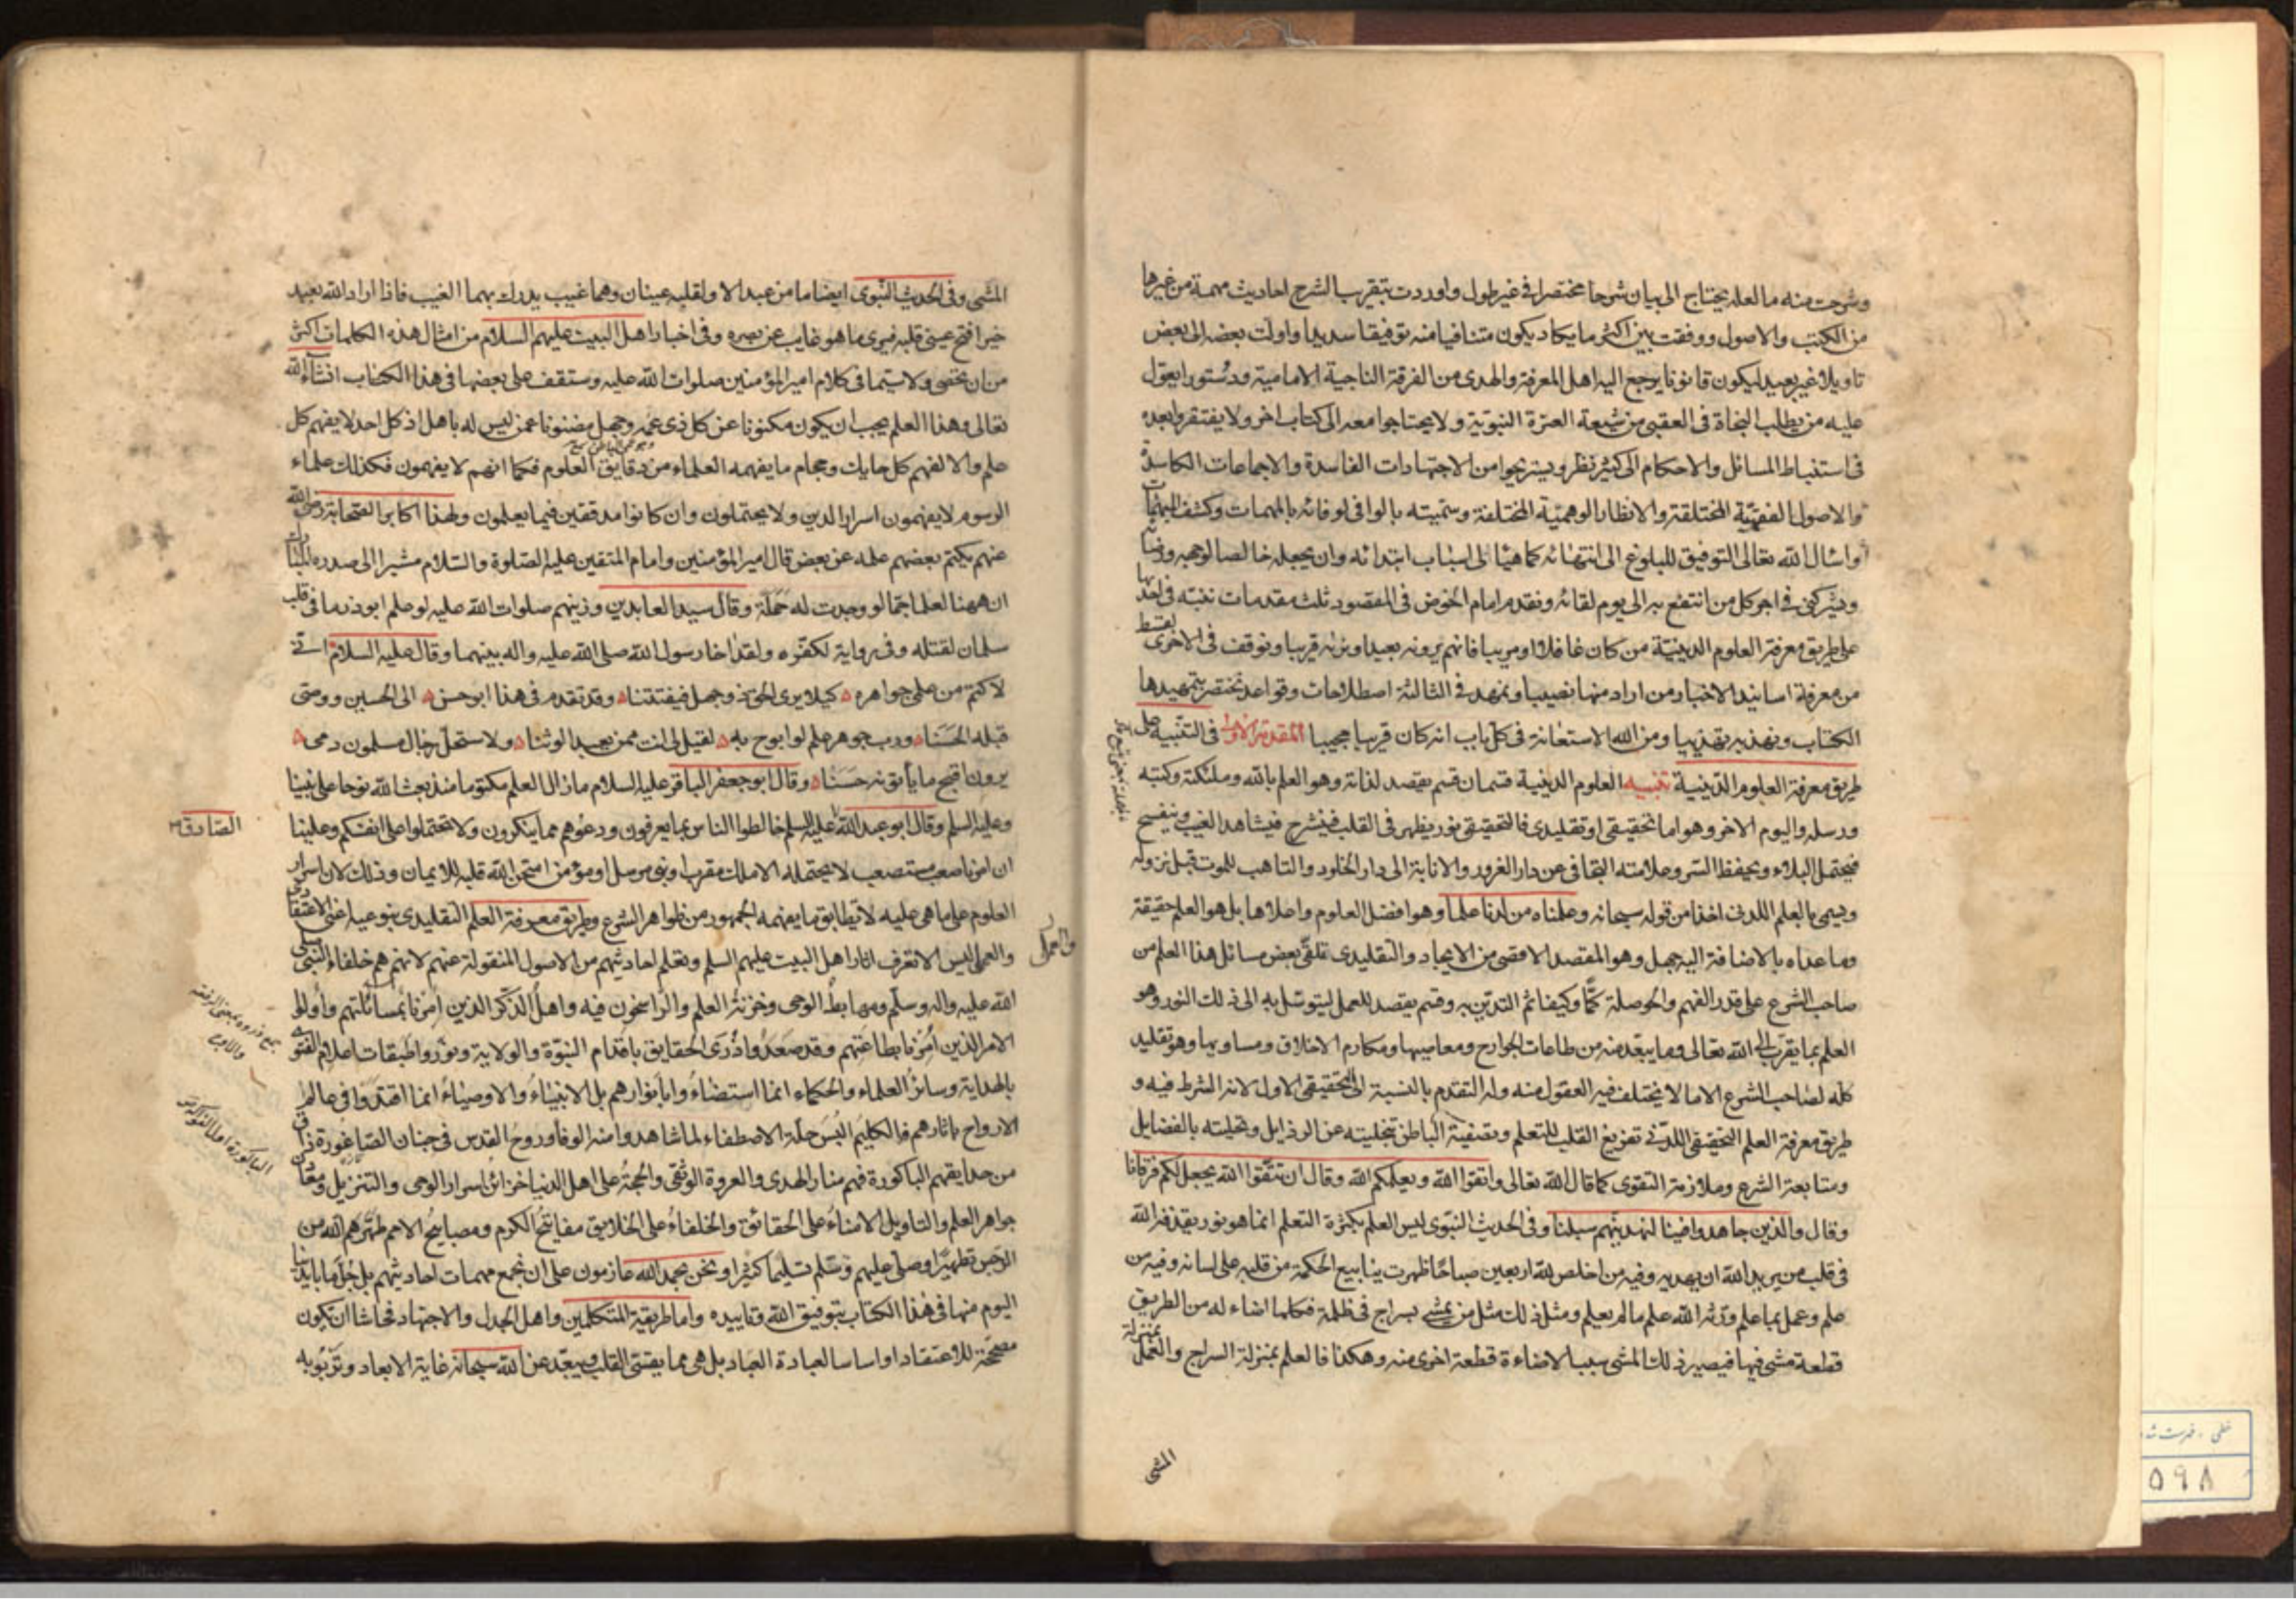 وشرحت منه ما لعله يحتاج الى بيان شرحا مختصرا فى غير طول واوردت بتقريب الشرح احاديث مهمة من غيرها
من الكتب والاصول ووفقت بين اكثر ما يكاد يكون متنافيا منه توفيقا سديدا واولت بعضه الى بعض
تاويلا غير بعيد ليكون قانونا يرجع اليه اهل المعرفة والهدى من الفرقة الناجية الامامية ودستورا يعول
عليه من يطلب النجاة فى العقبى من شيعة العترة النبوية ولا يحتاجوا معه الى كتاب اخر ولا يفتقروا بعده
فى استنباط المسائل والاحكام الى كثير نظر ويستريحوا من الاجتهادات الفاسدة والاجماعات الكاسدة
والاصول الفقهية المختلقة والانظار الوهمية المختلفة وسميته بالوافى لوفائه بالمهمات وكشف المبهمات
واسال الله تعالى التوفيق للبلوغ الى انتهائه كما هيأ لى اسباب ابتدائه وان يجعله خالصا لوجهه ورضاه
ويشركنى فى اجر كل من انتفع به الى يوم لقائه ونقدم امام الخوض فى المقصود ثلث مقدمات ننبه فى احديها
على طريق معرفة العلوم الدينية من كان غافلا او مريبا فانهم يرونه بعيدا ونريه قريبا ونوقف فى الاخرى لقسط
من معرفة اسانيد الاخبار من اراد منها نصيبا ونمهد فى الثالثة اصطلاحات وقواعد نختصر بتمهيدها
الكتاب ونهذبه تهذيبا ومن الله الاستعانة فى كل باب انه كان قريبا مجيبا المقدمة الاولى فى التنبيه على
طريق معرفة العلوم الدينية تنبيه العلوم الدينية قسمان قسم يقصد لذاته وهو العلم بالله وملئكته وكتبه
ورسله واليوم الاخر وهو اما تحقيقى او تقليدى فالتحقيقى نور يظهر فى القلب فينشرح فيشاهد الغيب وينفسح
فيحتمل البلاء ويحفظ السر وعلامته التجافى عن دار الغرور والانابة الى دار الخلود والتاهب للموت قبل نزوله
ويسمى بالعلم اللدنى اخذا من قوله سبحانه وعلمناه من لدنا علما وهو افضل العلوم واعلاها بل هو العلم حقيقة
وما عداه بالاضافة اليه جهل وهو المقصد الاقصى من الايجاد والتقليدى تلقى بعض مسائل هذا العلم من
صاحب الشرع على قدر الفهم والحوصلة كمّا وكيفا ثم التدين به وقسم يقصد للعمل ليتوسل به الى ذلك النور وهو
العلم بما يقرب الى الله تعالى وما يبعّد منه من طاعات الجوارح ومعاصيها ومكارم الاخلاق ومساويها وهو تقليد
كله لصاحب الشرع الا ما لا يختلف فيه العقول منه وله التقدم بالنسبة الى التحقيقى الاول لانه الشرط فيه و
طريق معرفة العلم التحقيقى اللدنى تفريغ القلب للتعلم وتصفية الباطن بتخليته عن الرذايل وتحليته بالفضايل
ومتابعة الشرع وملازمة التقوى كما قال الله تعالى واتقوا الله ويعلمكم الله وقال ان تتقوا الله يجعل لكم فرقانا
وقال والذين جاهدوا فينا لنهدينهم سبلنا وفى الحديث النبوى ليس العلم بكثرة التعلم انما هو نور يقذفه الله
فى قلب من يريد الله ان يهديه وفيه من اخلص لله اربعين صباحا ظهرت ينابيع الحكمة من قلبه على لسانه وفيه من
علم وعمل بما علم ورثه الله علم ما لم يعلم ومثل ذلك مثل من يمشى بسراج فى ظلمة فكلما اضاء له من الطريق
قطعة مشى فيها فيصير ذلك المشى سببا لاضاءة قطعة اخرى منه وهكذا فالعلم بمنزلة السراج والعمل بمنزلة
المشى
المشى وفى الحديث النبوى ايضا ما من عبد الا ولقلبه عينان وهما غيب يدرك بهما الغيب فاذا اراد الله بعبد
خيرا فتح عينى قلبه فيرى ما هو غايب عن بصره وفى اخبار اهل البيت عليهم السلام من امثال هذه الكلمات اكثر
من ان تحصى ولا سيما فى كلام امير المؤمنين صلوات الله عليه وستقف على بعضها فى هذا الكتاب انشاء الله
تعالى وهذا العلم يجب ان يكون مكنونا عن كل ذى عمه وجهل مضنونا عمن ليس له باهل اذ كل احد لا يفهم كل
علم والا لفهم كل حايك وحجام ما يفهمه العلماء من دقايق العلوم فكما انهم لا يفهمون فكذلك علماء
الرسوم لا يفهمون اسرار الدين ولا يحتملون وان كانوا مدققين فيما يعلمون ولهذا اكابر الصحابة رضى الله
عنهم يكتم بعضهم علمه عن بعض قال امير المؤمنين وامام المتقين عليه الصلوة والسلام مشيرا الى صدره المبارك
ان ههنا لعلما جما لو وجدت له حملة وقال سيد العابدين وزينهم صلوات الله عليه لو علم ابوذر ما فى قلب
سلمان لقتله وفى رواية لكفّره ولقد اخا رسول الله صلى الله عليه واله بينهما وقال عليه السلام انى
لاكتم من علمى جواهره كيلا يرى الحق ذو جهل فيفتتنا وقد تقدم فى هذا ابو حسن الى الحسين ووصى
قبله الحسنا ورب جوهر علم لو ابوح به لقيل لى انت ممن يعبد الوثنا ولاستحل رجال مسلمون دمى
يرون اقبح ما يأتونه حسنا وقال ابو جعفر الباقر عليه السلام ما زال العلم مكتوما منذ بعث الله نوحا على نبينا
وعليه السلم وقال ابو عبد الله عليه السلم خالطوا الناس بما يعرفون ودعوهم مما ينكرون ولا تحتملوا على انفسكم وعلينا
الصادق
ان امرنا صعب مستصعب لا يحتمله الا ملك مقرب او نبى مرسل او مؤمن امتحن الله قلبه للايمان وذلك لان اسرار
العلوم على ما هى عليه لا تطابق ما يفهمه الجمهور من ظواهر الشرع وطريق معرفة العلم التقليدى بنوعيه اعنى الاعتقادى
والعملى ليس الا تعرف اثار اهل البيت عليهم السلم وتعلم احاديثهم من الاصول المنقولة عنهم لانهم هم خلفاء النبى صلى
الله عليه واله وسلم ومهابط الوحى وخزنة العلم والراسخون فيه واهل الذكر الذين امرنا بمسائلتهم واولوا
الامر الذين امرنا بطاعتهم وقد صعدوا ذرى الحقايق باقدام النبوة والولاية ونوروا طبقات اعلام الفتوى
بالهداية وسائر العلماء والحكماء انما استضاءوا بانوارهم بل الانبياء والاوصياء انما اقتدوا فى عالم
الارواح باثارهم فالكليم البس حلة الاصطفاء لما شاهدوا منه الوفا وروح القدس فى جنان الصاغورة ذاق
من حدايقهم الباكورة فهم منار الهدى والعروة الوثقى والحجة على اهل الدنيا خزائن اسرار الوحى والتنزيل ومعادن
جواهر العلم والتاويل الامناء على الحقائق والخلفاء على الخلايق مفاتيح الكرم ومصابيح الامم طهرهم الله من
الرجس تطهيرا وصلى عليهم وسلم تسليما كثيرا ونحن بحمد الله عازمون على ان نجمع مهمات احاديثهم بل جل ما بايدينا
اليوم منها فى هذا الكتاب بتوفيق الله وتاييده واما طريقة المتكلمين واهل الجدل والاجتهاد فحاشا ان تكون
مصححة للاعتقاد او اساسا لعبادة العباد بل هى مما يقسى القلب ويبعد عن الله سبحانه غاية الابعاد وتربو به
٥٩٨